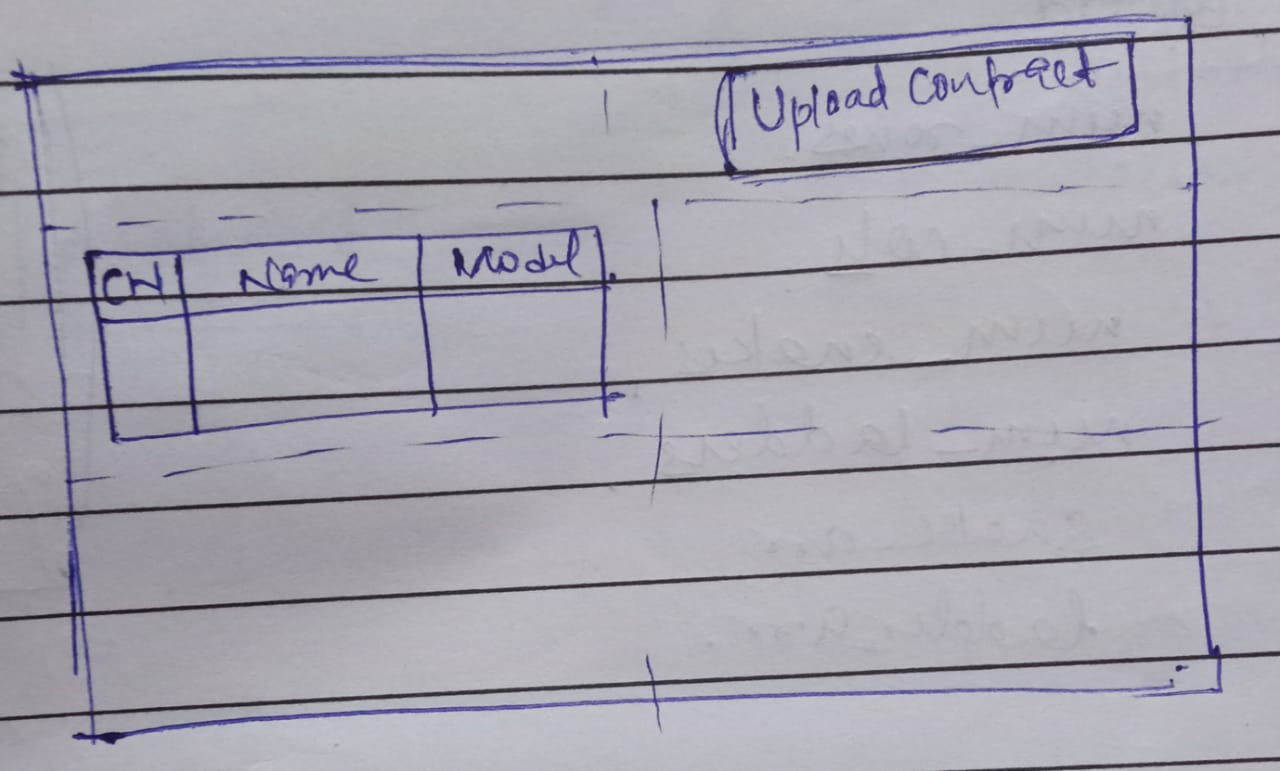 Upload Contract
CN Name Model